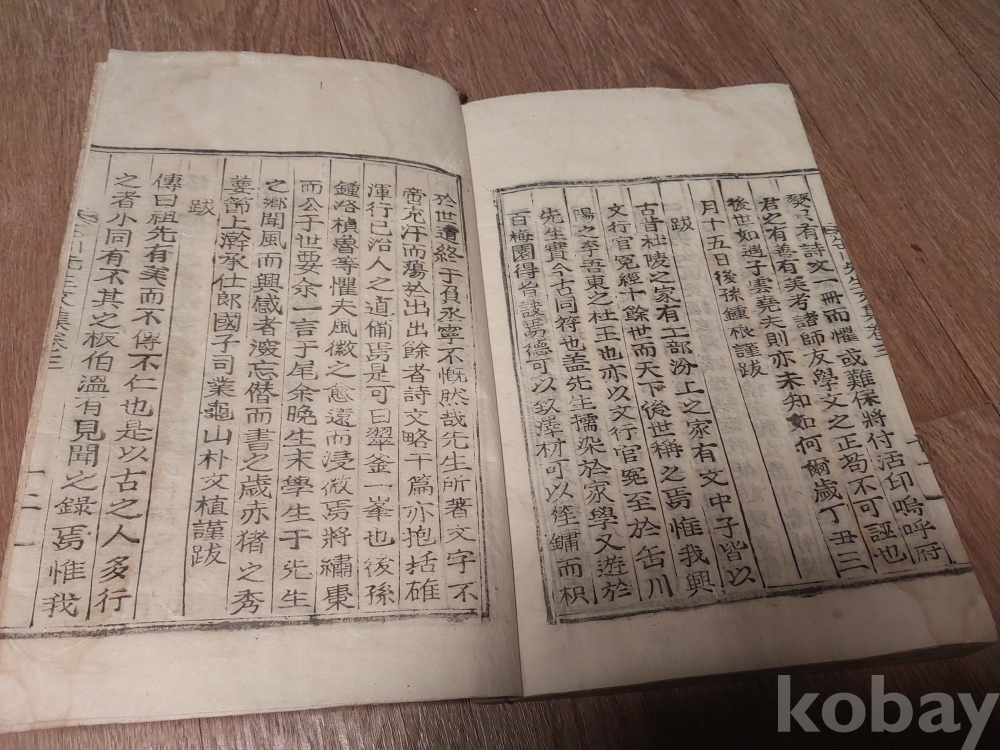 只有詩文一冊而懼或難保將付活印嗚呼府
君之有善有美考諸師友學文之正苟不可誣也
後世如遇子雲堯夫則亦未知如何爾歲丁丑三
月十五日後孫鍾根謹跋
跋
古昔杜陵之家有工部汾上之家有文中子皆以
文行官冕經十餘世而天下後世稱之焉惟我興
陽之李吾東之杜王也亦以文行官冕至於缶川
先生實今古同符也盖先生擩染於家學又遊於
百梅園得旨訣焉德可以釸澤材可以笙鏞而枳
於世遺終于負丞寧不慨然哉先生所著文字不
啻充汗而蕩於出出餘者詩文略干篇亦抱括雄
渾行已治人之道備焉是可曰翠釜一峯也後孫
鍾洛楨魯等懼夫風徽之愈遠而浸微焉將繡棗
而公于世要余一言于尾余晩生末學生于先生
之鄕聞風而興感者溲忘僭而書之歲赤猪之秀
葽節上澣承仕郎國子司業龜山朴文植謹跋
跋
傳曰祖先有美而不傳不仁也是以古之人多行
之者小同有不其之板伯溫有見聞之錄焉惟我
川先生文集卷三
十二
kobay